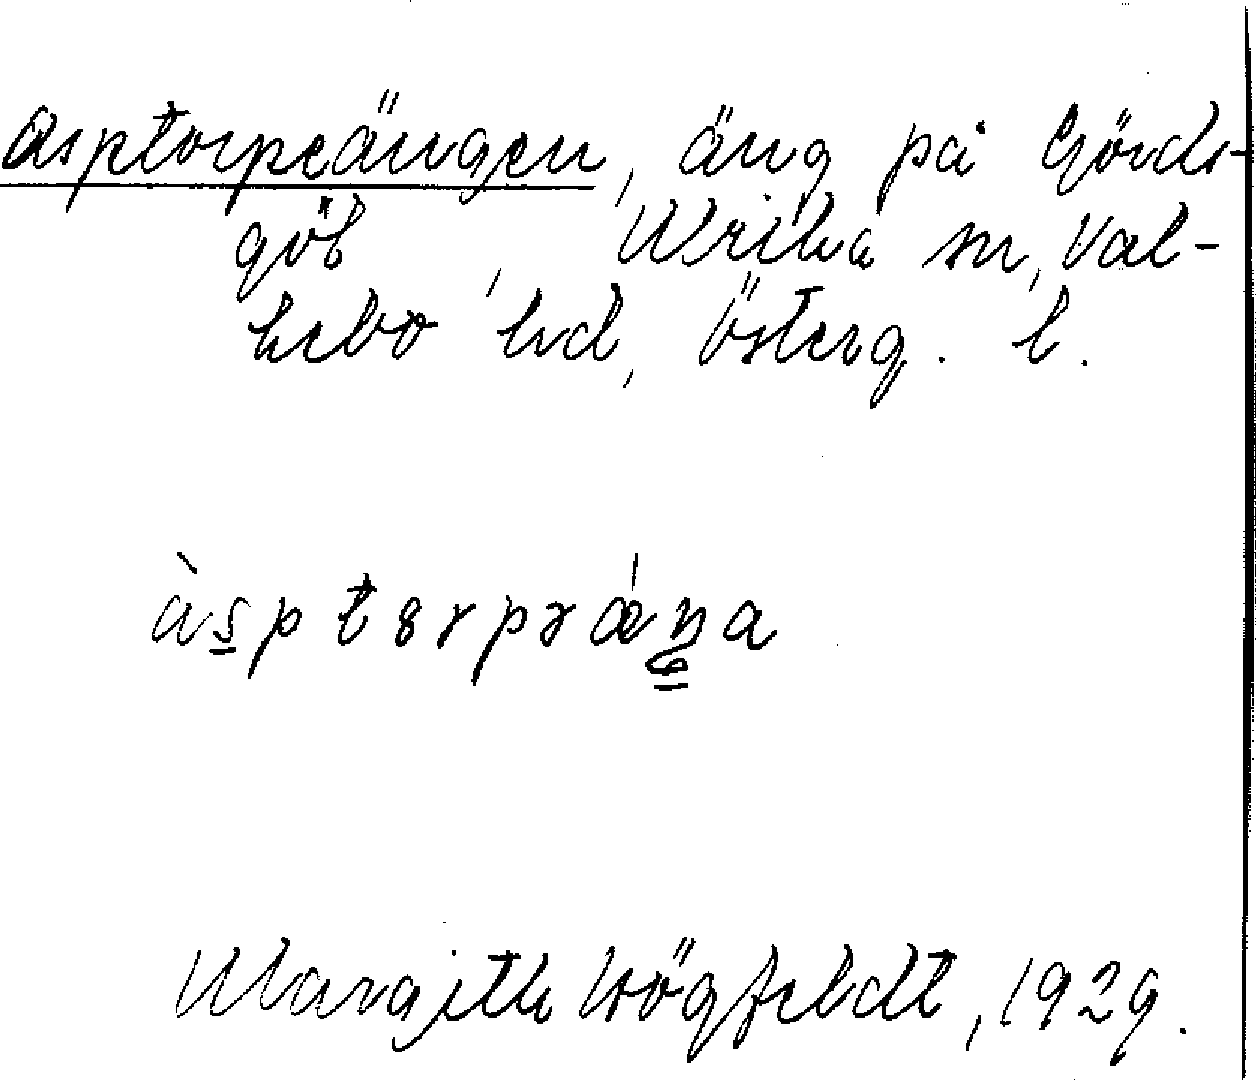 Asptorpeängen, äng på Gjörds-
göl, Ulrika sn, Val-
kebo hd, Österg. l.
Margith Högfeldt, 1929.